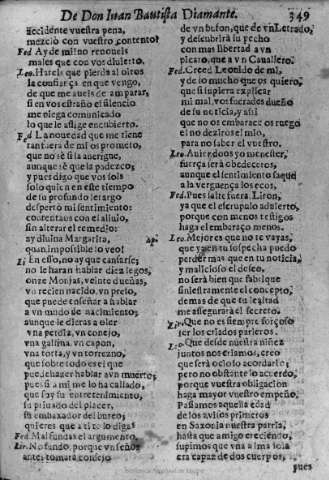 De Don Iuan Bautista Diamante. 349
accidente vuestra pena,
mezciò con vuestro contento?
Fed Ay de mi! no renoueis
males que con vos diuierto.
Leo. Hareis que pierda al oiros
la confiança en que vengo,
de que me aueis de amparar,
si en vos estraño el silencio
me niega comunicado
lo que le aflige encubierto.
Fed La nouedad que me tiene
tan fuera de mi os prometo,
que no sè si la aueriguo,
aunque sè que la padezco;
y pues digo que vos sois
solo quien en este tiempo
de su profundo letargo
despertò mi sentimiento:
contentaos con el aliuio,
sin alterar el remedio:
ay diuina Margarita, ap.
quan impossible os veo!
Li En esso, no ay que cansarse;
no le haran hablar diez legos,
onze Monjas, veinte dueñas,
vn recien nacido, vn preso,
que puede enseñar a hablar
a vn mudo de nacimiento;
aunque le dieras a oler
vna perdiz, vn conejo,
vna gallina, vn capon,
vna torta, y vn torrezno,
que sobre todo esso es que
puede hazer hablar a vn muerto;
pues si a mi me lo ha callado,
que soy su entretenimiento,
su priuado del placer,
su embaxador del bureo,
quieres que a ti te lo diga?
Fed Mal fundas el argumento,
Lir. No fundo, porque vn señor
antes tomarà consejo
de vn bufon, que de vn Letrado,
y descubrirà su pecho
con mas libertad a vn
picaro, que a vn Cauallero.
Fed. Creed Leonido de mi,
y de lo mucho que os quiero,
que si supiera explicar
mi mal, vos fuerades dueño
de su noticia, y assi
que no os embarace os ruego
el no deziros el mio,
para no saber el vuestro.
Leo. Auiendoos yo menester,
fuerça serà obedeceros,
aunque el sentimiento saque
a la verguença los ecos.
Fed. Pues salte fuera Liron,
ya que el escrupulo aduierto,
porque con menos testigos
haga el embaraço menos.
Leo. Mejor es que no te vayas,
que quien tu sospecha puedo
perder mas que en tu noticia,
y malicioso el deseo,
no serà bien que fabrique
siniestramente el concepto,
demas de que tu lealtad
me assegurarà el secreto.
Lir. Que no es siempre forçoso
ser los criados parleros.
Leo. Que desde nuestra niñez
juntos nos criamos, creo
que serà ocioso acordarlo;
pero no obstante lo acuerdo,
porque vuestra obligacion
haga mayor vuestro empeño.
Passamos aquella edad
de los auisos primeros
en Saxonia nuestra patria,
hasta que amigo creciendo,
supimos que vna alma sola
era capaz de dos cuerpos,
pues